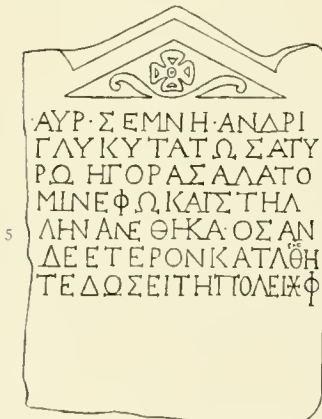 ΑΥΡ·ΣΕΜΝΗ·ΑΝΔΡΙ
ΓΛΥΚΥΤΑΤΩΣΑΤΥ
ΡΩ ΗΓΟΡΑΣΑΛΑΤΟ
ΜΙΝΕΦΩΚΑΙΣΤΗΛ
5 ΛΗΝΑΝΕΘΗΚΑ·ΟΣΑΝ
ΔΕΕΤΕΡΟΝΚΑΤΛΘΗ
ΤΕΔΩΣΕΙΤΗΠΟΛΕΙ✳Φ